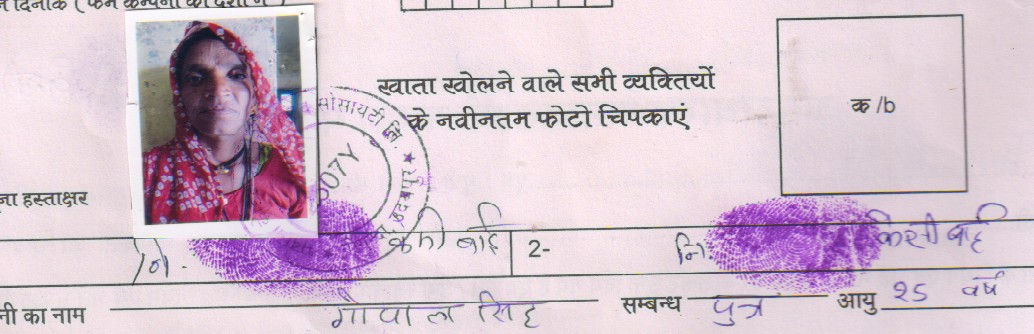 न दिनांक ( फर्म कम्पनी की दशा में )
खाता खोलने वाले सभी व्यक्तियों
के नवीनतम फोटो चिपकाएं
क /b
सोसायटी लि. ★ उदयपुर
ना हस्ताक्षर
नि. बाई 2- नि. किसी बाई
नी का नाम गोपाल सिंह सम्बन्ध पुत्र आयु २५ वर्ष